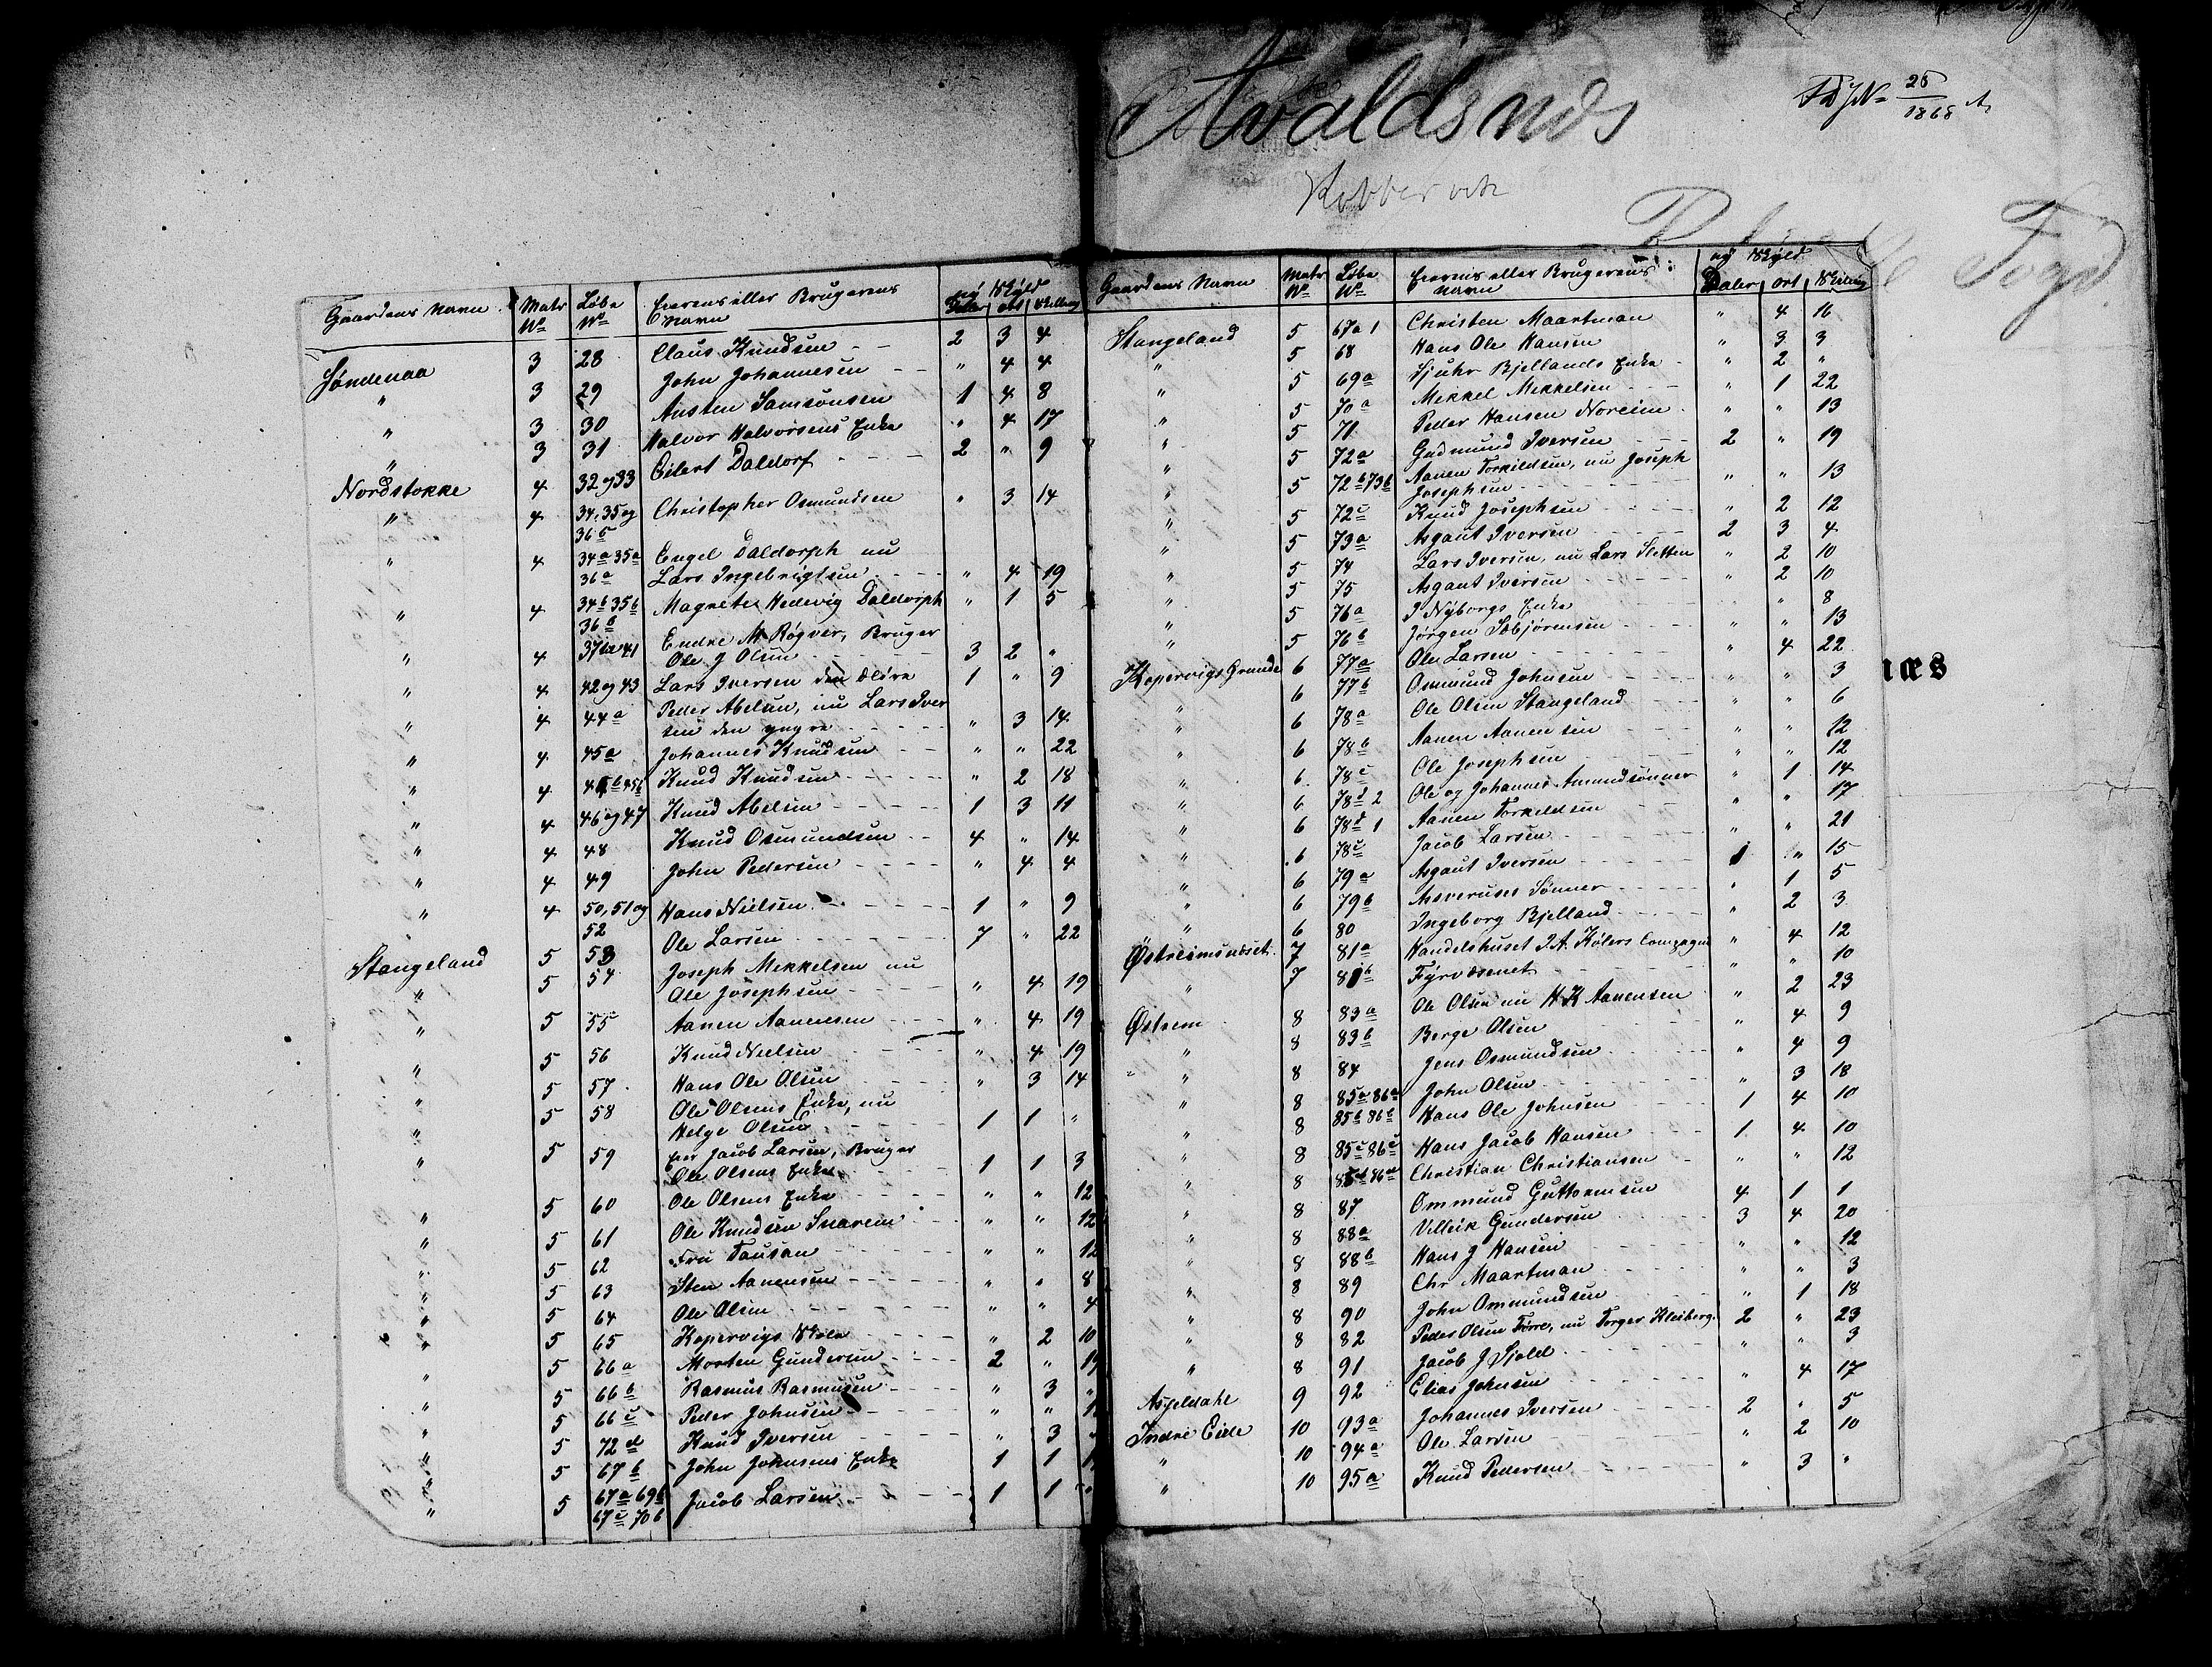 Avaldsnæs
28
1868
Fogd
næs
Gaardens Navn Matr No Løbe No Eierens eller Brugerens Navn ny Skyld Daler ort Skilling
Søndenaa 3 28 Claus Knudsen 2 3 4
" 3 29 John Johannesen " 4 4
" 3 30 Austen Samsonsen 1 4 8
" 3 31 Halvor Halvorsens Enke " 4 17
Nordstokke 4 32 og 33 Eilert Daldorf 2 " 9
" 4 34, 35 og Christopher Osmundsen " 3 14
36 c
" 4 34a 35a Engel Daldorph nu
36a Lars Ingebrigtsen " 4 19
" 4 34b 35b Magrete Hedevig Daldorph " 1 5
36b
Endre M Røgver, Bruger
" 4 41 Ole J Olsen 3 2 "
" 4 42 og 43 Lars Iversen den ældre 1 " 9
" 4 44a Peder Abelsen, nu Lars Iver
sen den yngre " 3 14
" 4 45a Johannes Knudsen " " 22
" 4 45b Knud Knudsen " 2 18
" 4 46 og 47 Knud Abelsen 1 3 11
" 4 48 Knud Osmundsen 4 " 14
" 4 49 John Pedersen " 4 4
" 4 50, 51 og Hans Nielsen 1 " 9
52
Stangeland 5 53 Ole Larsen 7 " 22
" 5 54 Joseph Mekkelsen nu
Ole Josephsen " 4 19
" 5 55 Aanen Aanensen " 4 19
" 5 56 Knud Nielsen " 4 19
" 5 57 Hans Ole Olsen " 3 14
" 5 58 Ole Olsens Enke, nu
Helge Olsen 1 1 "
" 5 59 Eier Jacob Larsen, Bruger
Ole Olsens Enke 1 1 3
" 5 60 Ole Olsens Enke " " 12
" 5 61 Ole Knudsen Snarem " " 12
" 5 62 Fru Tausan " " 12
" 5 63 Sten Aanensen " " 8
" 5 64 Ole Olsen " " 4
" 5 65 Kopervigs Skole " 2 10
" 5 66a Morten Gundersen 2 " 19
" 5 66b Rasmus Rasmusen " 3 "
" 5 66c Peder Johnsen " "
" 5 72d Knud Iversen " 3
" 5 67b John Johnsens Enke 1 1
" 5 67a 69b Jacob Larsen 1 1 "
67c 70b
Gaardens Navn Matr No Løbe No Eierens eller Brugerens Navn ny Skyld Daler ort Skilling
Stangeland 5 67a 1 Christen Maartman " 4 16
" 5 68 Hans Ole Hansen " 3 3
" 5 69a Sjuhr Bjellands Enke " 2 "
" 5 70a Mekkel Mekkelsen " 1 22
" 5 71 Peder Hansen Noreim " " 13
" 5 72a Gudmund Iversen 2 " 19
" 5 72b 73b Aanen Torkildsen, nu Joseph
Josephsen " " 13
" 5 72c Knud Josephsen " 2 12
" 5 73a Asgaut Iversen 2 3 4
" 5 74 Lars Iversen, nu Lars Sletten " 2 10
" 5 75 Asgaut Iversen " 2 10
" 5 76a I Nyborgs Enke " " 8
" 5 76b Jørgen Asbjørnsen " " 13
Kopervigs Grunde 6 77a Ole Larsen " 4 22
" 6 77b Osmund Johnsen " " 3
" 6 78a Ole Olsen Stangeland " " 6
" 6 78b Aanen Aanensen " " 12
" 6 78c Ole Josephsen " " 12
" 6 78d 2 Ole og Johannes Amundsønner " 1 14
" 6 78d 1 Aanen Torkeldsen " " 17
" 6 78e Jacob Larsen " " 21
" 6 79a Asgaut Iversen 1 " 15
" 6 79b Asveruses Sønner " 1 5
" 6 80 Ingeborg Bjelland " 2 3
7 81a Handelshuset I. A. Kølers Compagni " 4 12
" 7 81b Fyrvæsenet " " 10
Østrem 8 83a Ole Olsen nu H K Aanensen " 2 23
" 8 83b Berge Olsen " 4 9
" 8 84 Jens Osmundsen " 4 9
" 8 85a 86a John Olsen " 3 18
" 8 85b 86b Hans Ole Johnsen 1 4 10
" 8 85c 86c Hans Jacob Hansen 1 4 10
" 8 85d 86d Christian Christiansen " " 12
" 8 87 Ommund Guttormsen 4 1 1
" 8 88a Villeik Gundersen 3 4 20
" 8 88b Hans J Hansen " " 12
" 8 89 Chr Maartman " " 3
" 8 90 John Ommundsen " 1 18
" 8 82 Peder Olsen Tørre, nu Torger Kleiberg 2 " 23
" 8 91 Jacob J Sjold " " 3
9 92 Elias Johnsen " 4 17
Indre Eide 10 93a Johannes Iversen 2 " 5
" 10 94a Ole Larsen " 2 10
" 10 95a Knud Pedersen " 3 "